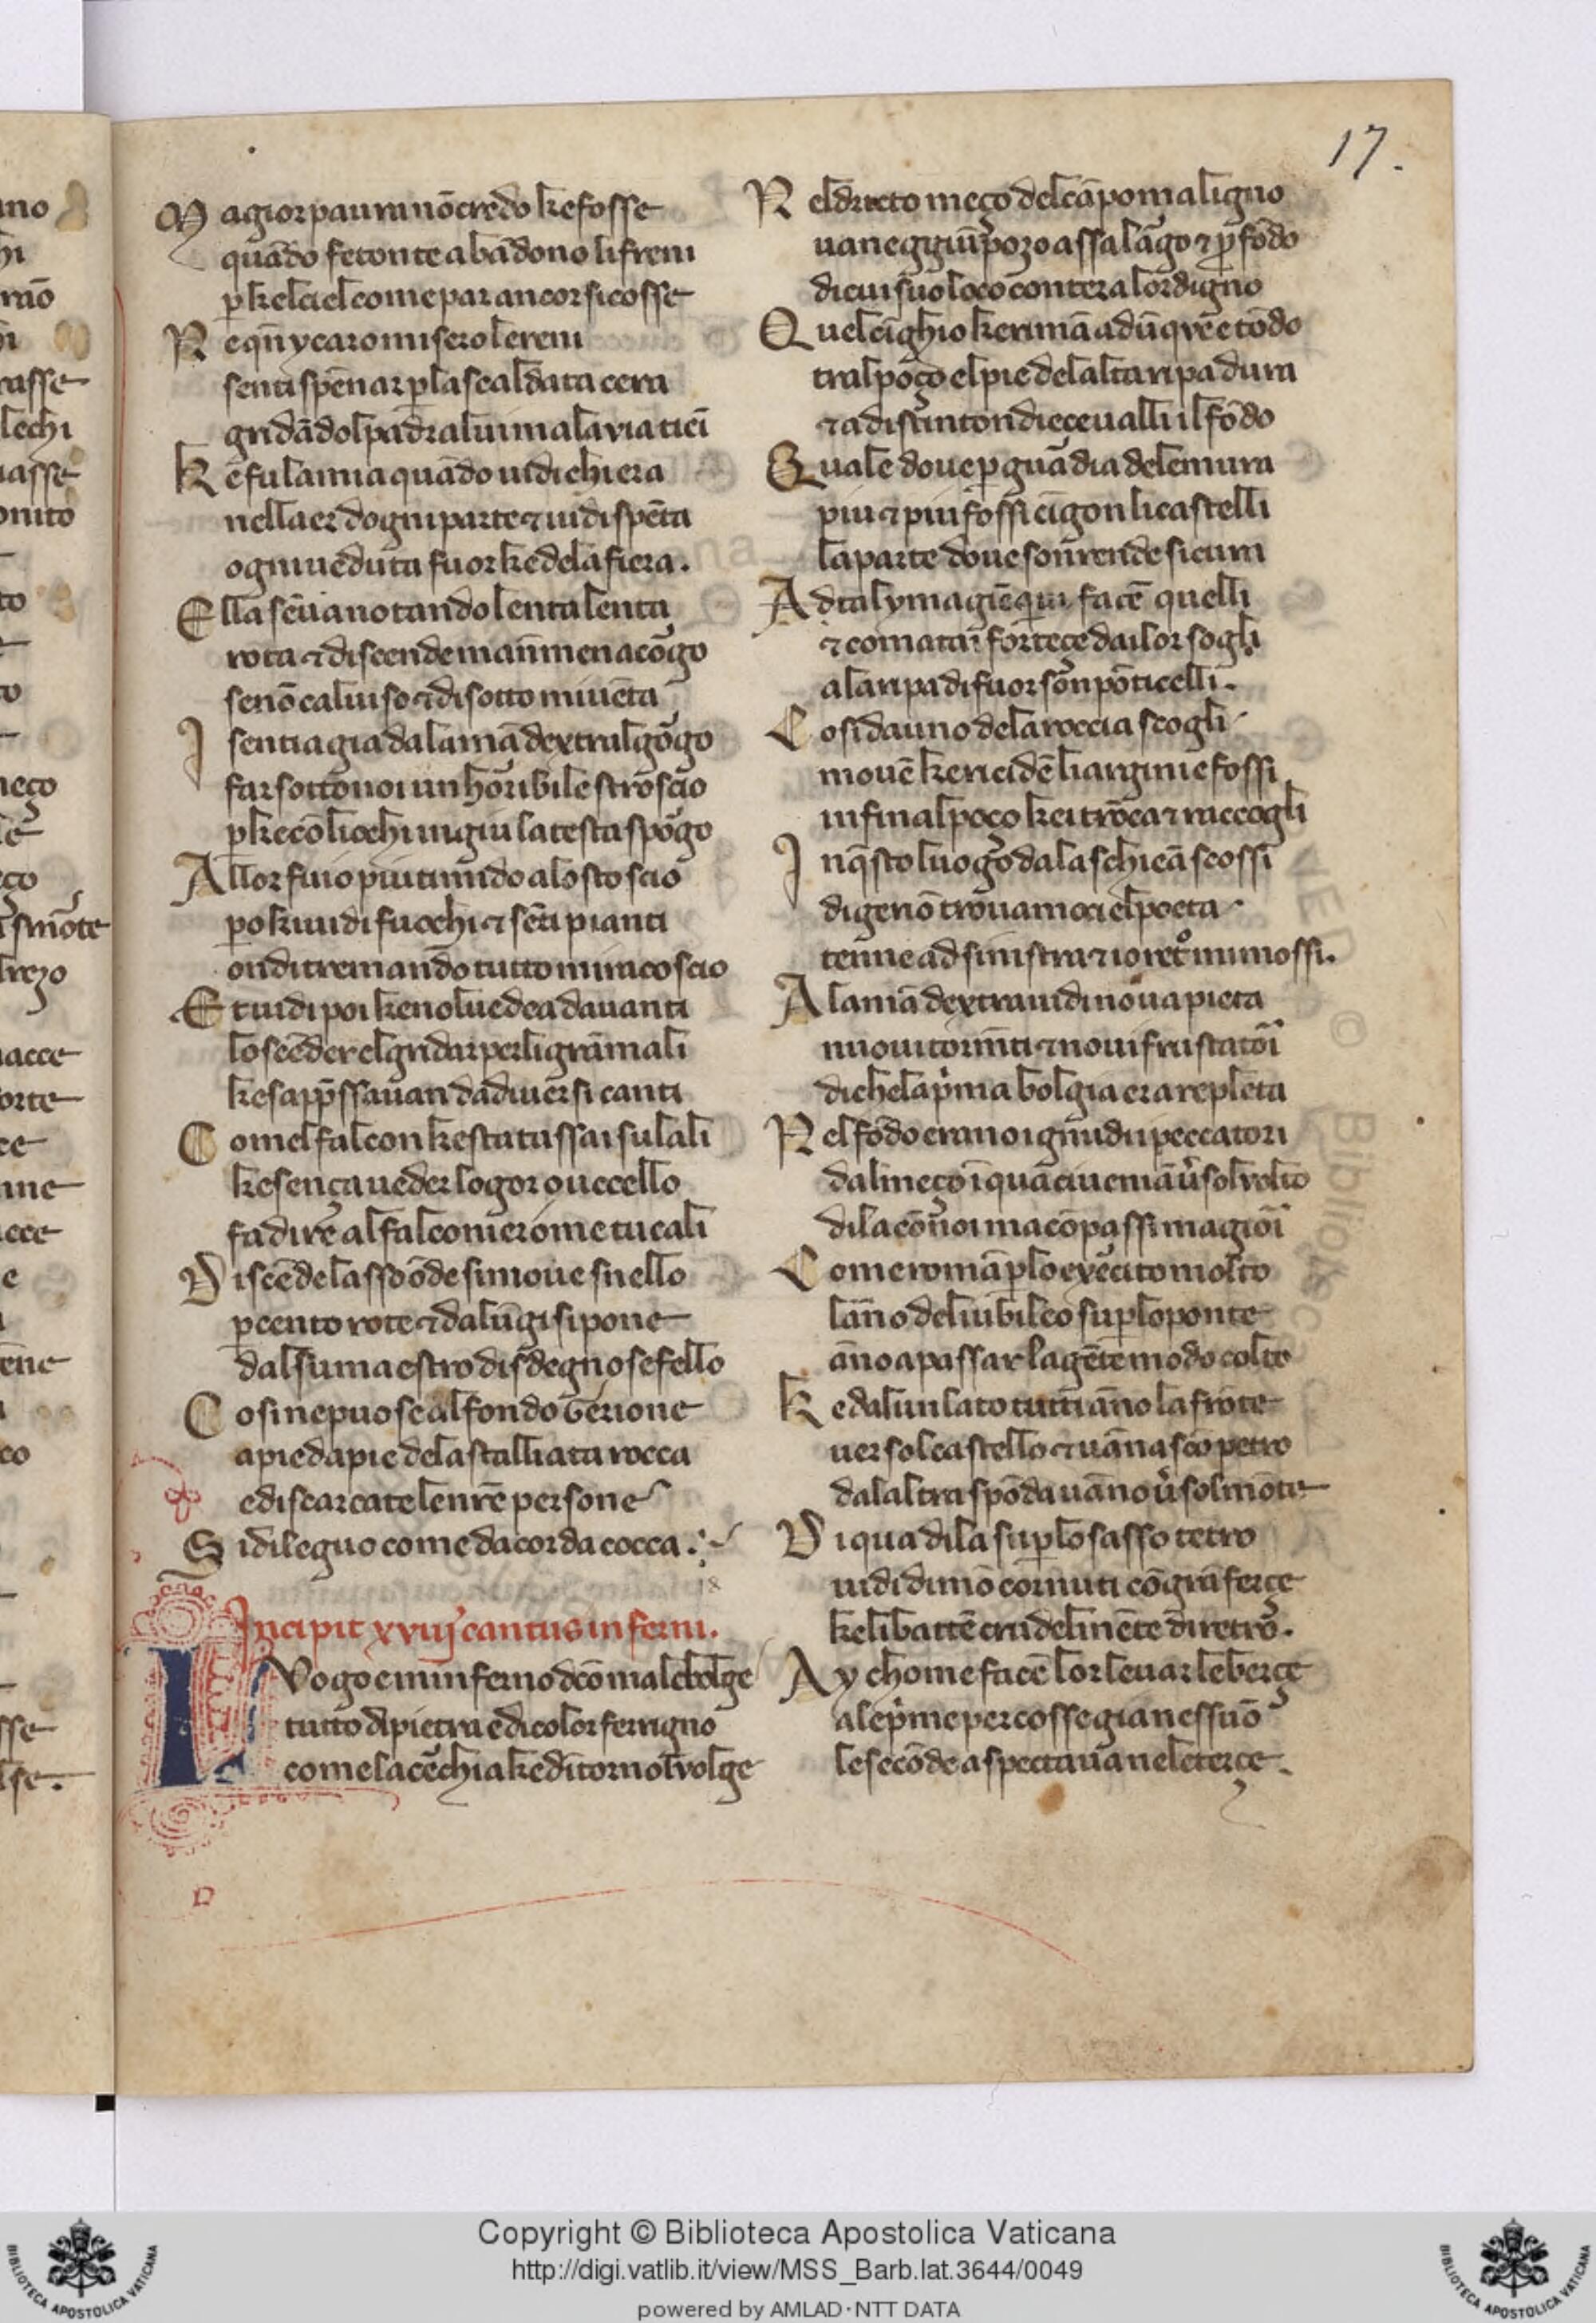 17.
Magior paura nō credo ke fosse
quādo fetonte abādono li freni
p kelciel come par ancor si cosse
Ne qn̄ ycaro misero le reni
senti spēnar p la scaldata cera
gridādol padr a lui mala via tieī
Kē fu la mia quādo uidi chiera
nellaer dogni parte ⁊ uidi spēta
ogni ueduta fuor ke dela fiera.
Ella sē ua notando lenta lenta
rota ⁊ discende ma nn̄ men acōgo
se nō cal uiso ⁊ di sotto mi uēta
I sentia gia dala mā dextra il gōgo
far sotto noi un horribile strōscio
p ke cō liocchi ingiu la testa spōgo
Allor fu io piu timido alo stoscio
po kiuidi fuochi ⁊ sēti pianti
ondi tremando tutto mi racoscio
E tuidi poi ke nol uedea dauanti
lo scēder el gridar per li grā mali
ke sapp̄ssauan da diuersi canti
Comel falcon ke stata ssai su lali
ke sença ueder logor o uccello
fa dire al falconiero me tu cali
Discēde lasso ōde si moue snello
p cento rote ⁊ da lūgi si pone
dal su maestro disdegnoso e fello
Cosi ne puose al fondo Gerione
a pie da pie dela stalliata rocca
e discarcate le nr̄e persone
Si dileguo come da corda cocca.
Incipit xviij cantus inferni.
LVogo e in inferno dc̄o malebolge
tutto di pietra e di color ferrigno
come la cēchia ke ditornol volge
Nel dricto meço del cāpo maligno
uaneggia ū pozo assa lāgo ⁊ p̄fōdo
di cui suo loco contera lordigno
Quel cīghio ke rimā adūq̄ ē tōdo
tral poço el pie del alta ripa dura
⁊ a distinto n diece ualli il fōdo
Quale doue p guādia dele mura
piu ⁊ piu fossi cīgon li castelli
la parte doue son rende sicura
Ad tal ymagīe qui facē quelli
⁊ com a tai forteçe dai lor sogli
a la ripa di fuor son pōticelli.
Cosi da uno dela roccia scogli
mouē ke ricidē li argini e fossi
infin al poço ke i trōca ⁊ raccogli
In q̄sto luogo dala schiēa scossi
di geriō trouamoci el poeta
tenne ad sinistra ⁊ io retº mi mossi.
A la mā dextra uidi nova pieta
nuoui tormēti ⁊ noui frustatōi
di che la p̄ma bolgia era repleta
Nel fōdo erano ignudi i peccatori
dal meço ī qua ci ueniā u̓sol volto
di la cō noi ma cō passi magiōi
Come i romā p lo exēcito molto
lāno del iubileo su p lo ponte
āno a passar la gēte modo colto
Ke dalun lato tutti āno la frōte
uerso l castello ⁊ uānа sc̄o petro
da laltra spōda uāno u̓sol mōte
Di qua di la su p lo sasso tetro
uidi dimō cornuti cō grā ferçe
ke li battē crudelmēte diretro.
Ay chome facē lor leuar le berçe
ale p̄me percosse gia nessuō
le secōde aspectaua ne le terçe.
Copyright © Biblioteca Apostolica Vaticana
http://digi.vatlib.it/view/MSS_Barb.lat.3644/0049
powered by AMLAD·NTT DATA